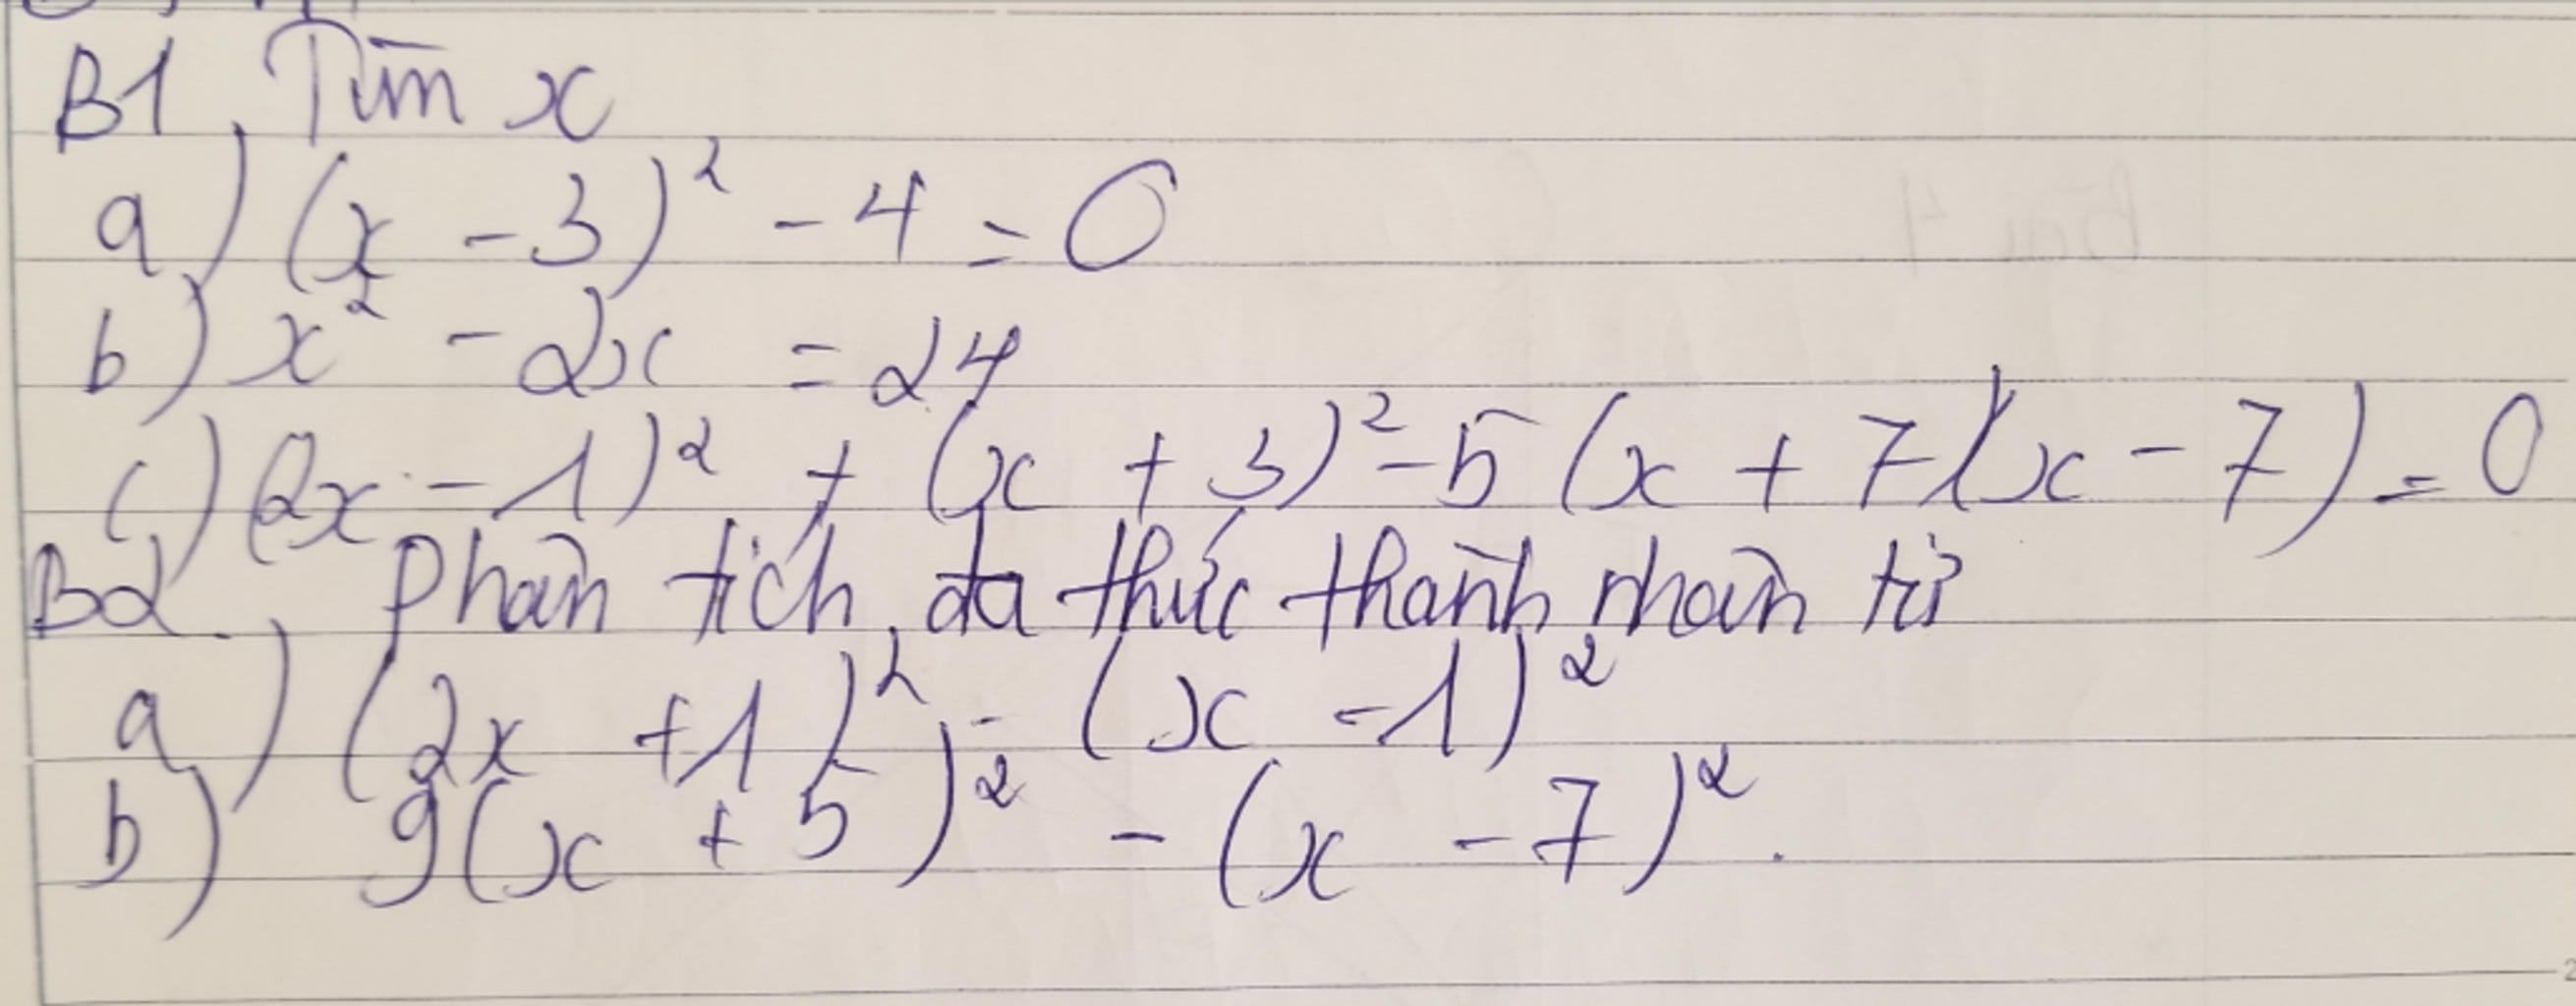 B1, Tìm x
a) (x - 3)² - 4 = 0
b) x² - 2x = 24
c) (2x - 1)² + (x + 3)² - 5(x + 7)(x - 7) = 0
B2. Phân tích đa thức thành nhân tử
a) (2x + 1)² - (x - 1)²
b) 9(x + 5)² - (x - 7)².